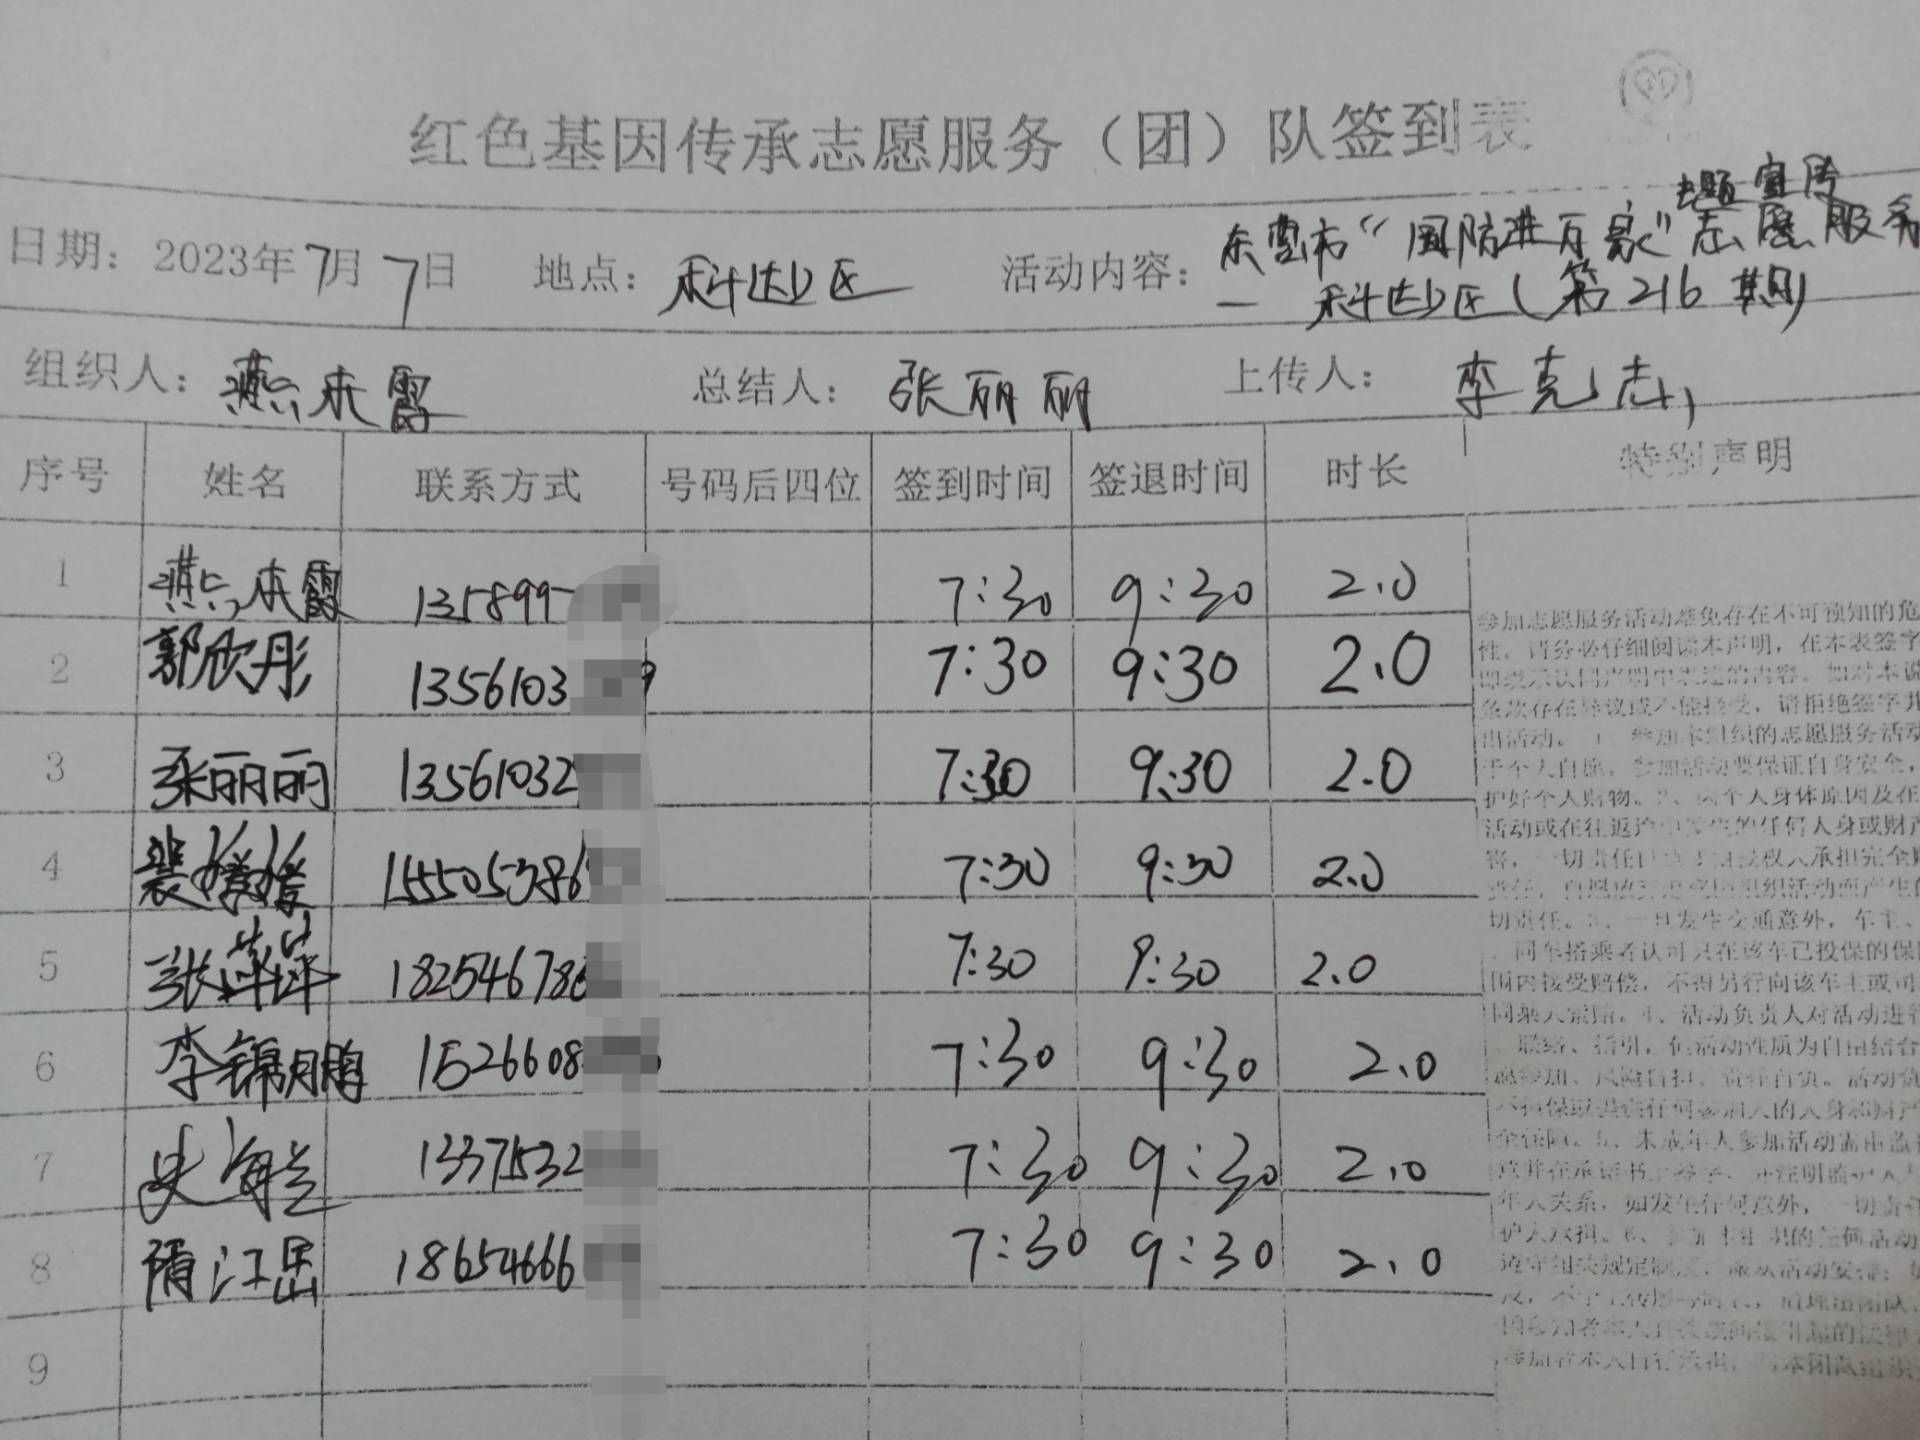 红色基因传承志愿服务（团）队签到表
主题宣传
日期：2023年7月7日 地点：科达社区 活动内容：东营市“国防进万家”志愿服务
一 科达社区（第216期）
组织人：燕本霞 总结人：张丽丽 上传人：李克志
序号 姓名 联系方式 号码后四位 签到时间 签退时间 时长 特别声明
1 燕本霞 135899 7:30 9:30 2.0
2 郭欣彤 1356103 9 7:30 9:30 2.0
3 张丽丽 13561032 7:30 9:30 2.0
4 裴媛媛 155505386 7:30 9:30 2.0
5 张萍萍 18254678 7:30 9:30 2.0
6 李锦鹏 1526608 7:30 9:30 2.0
7 史海兰 1337532 7:30 9:30 2.0
8 隋江 18654666 7:30 9:30 2.0
9
参加志愿服务活动难免存在不可预知的危
性。请务必仔细阅读本声明，在本表签字
即表示认同声明中表述的内容。如对本说
条款存在异议或不能接受，请拒绝签字并
出活动。1、参加本组织的志愿服务活动
于个人自愿，参加活动要保证自身安全，
护好个人财物。2、因个人身体原因及在
活动或在往返途中发生的任何人身或财产
切责任。3、一旦发生交通意外，车主、
同车搭乘者认可只在该车已投保的保
围内接受赔偿，不得另行向该车主或司
同乘人索赔。4、活动负责人对活动进行
联络、指引，但活动性质为自由结合
愿参加、风险自担、责任自负。活动负
不担保或提供任何参加人的人身和财产
全保障。5、未成年人参加活动需由监
年人关系，如发生任何意外，一切责任
护人承担。6、